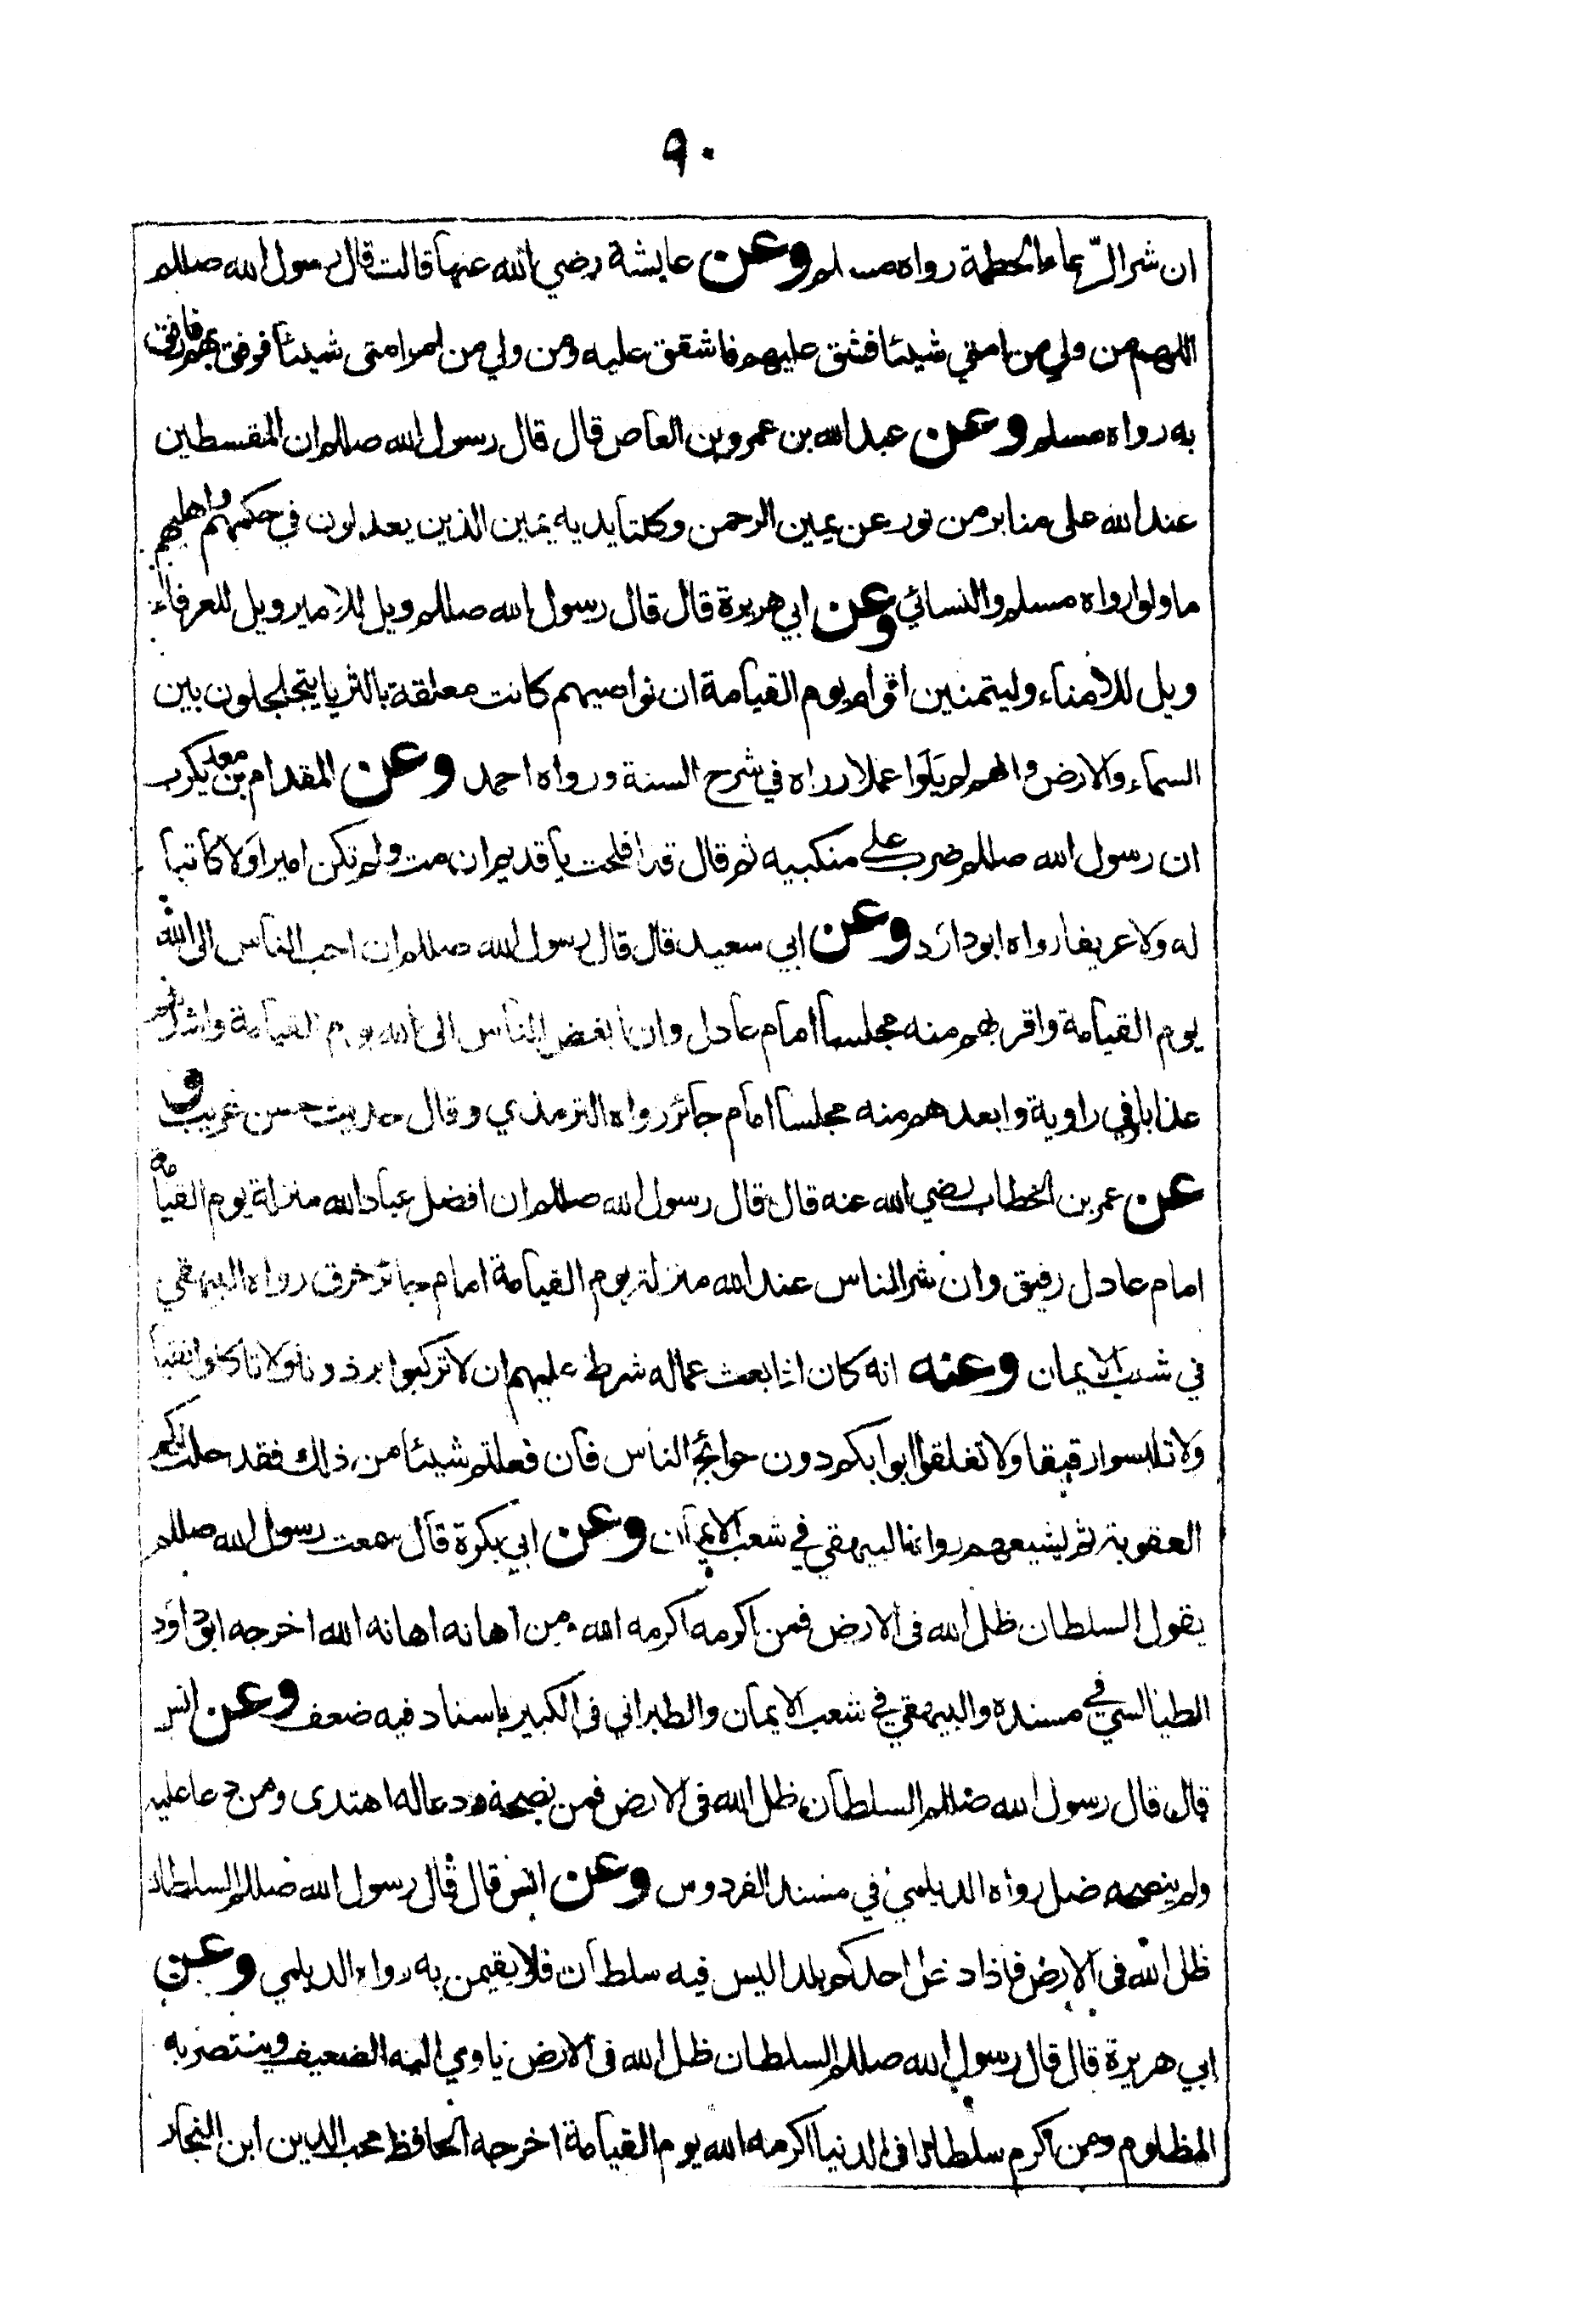 ٩٠
ان شر الرّعاء الحطمة رواه مسلم وعن عايشة رضي الله عنها قالت قال رسول الله صللم
اللهم من ولي من امتي شيئا فشق عليهم فاشقق عليه ومن ولي من امر امتى شيئا فرفق بهم فارفق
به رواه مسلم وعن عبد الله بن عمرو بن العاص قال قال رسول الله صللم ان المقسطين
عند الله على منابر من نور عن يمين الرحمن وكلتا يديه يمين الذين يعدلون في حكمهم واهليهم
ما ولوا رواه مسلم والنسائي وعن ابي هريرة قال قال رسول الله صللم ويل للامير ويل للعرفاء
ويل للامناء وليتمنين اقوام يوم القيامة ان نواصيهم كانت معلقة بالثريا يتجلجلون بين
السماء والارض وانهم لم يلوا عملا رراه في شرح السنة ورواه احمد وعن المقدام بن معد يكرب
ان رسول الله صللم ضرب على منكبيه ثم قال قد افلحت يا قديم ان مت ولم تكن اميرا ولا كاتبا
له ولا عريفا رواه ابو داؤد وعن ابي سعيد قال قال رسول الله صللم ان احب الناس الى الله
يوم القيامة واقربهم منه مجلسا امام عادل وان ابغض الناس الى الله يوم القيامة واشدهم
عذابا وفي راوية وابعدهم منه مجلسا امام جائر رواه الترمذي وقال حديث حسن غريب و
عن عمر بن الخطاب رضي الله عنه قال قال رسول الله صللم ان افضل عباد الله منزلة يوم القيامة
امام عادل رفيق وان شر الناس عند الله منزلة يوم القيامة امام جائر خرق رواه البيهقي
في شعب الايمان وعنه انه كان اذا بعث عماله شرط عليهم ان لا تركبوا برذونا ولا تاكلوا نقيا
ولا تلبسوا رقيقا ولا تغلقوا ابوابكم دون حوائج الناس فان فعلتم شيئا من ذلك فقد حلت بكم
العقوبة ثم يشيعهم رواهما البيهقي في شعب الايمان وعن ابي بكرة قال سمعت رسول الله صللم
يقول السلطان ظل الله فى الارض فمن اكرمه اكرمه الله ومن اهانه اهانه الله اخرجه ابو داؤد
الطيالسي في مسنده والبيهقي في شعب الايمان والطبراني فى الكبير باسناد فيه ضعف وعن انس
قال قال رسول الله صللم السلطان ظل الله فى الارض فمن نصحه ودعاله اهتدى ومن دعا عليه
ولم ينصحه ضل رواه الديلمي في مسند الفردوس وعن انس قال قال رسول الله صللم السلطان
ظل الله فى الارض فاذا دخل احدكم بلدا ليس فيه سلطان فلا يقيمن به رواه الديلمي وعن
ابي هريرة قال قال رسول الله صللم السلطان ظل الله فى الارض ياوي اليه الضعيف وينتصر به
المظلوم ومن اكرم سلطان الله فى الدنيا اكرمه الله يوم القيامة اخرجه الحافظ محب الدين ابن النجار